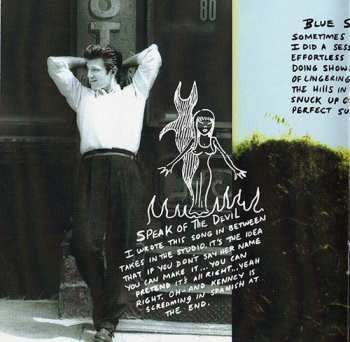 ST
80
SPEAK OF THE DEVIL
I WROTE THIS SONG IN BETWEEN
TAKES IN THE STUDIO. IT'S THE IDEA
THAT IF YOU DON'T SAY HER NAME
YOU CAN MAKE IT... YOU CAN
PRETEND IT'S ALL RIGHT... YEAH
RIGHT. OH- AND KENNEY IS
SCREAMING IN SPANISH AT
THE END.
BLUE S
SOMETIMES
I DID A SES
EFFORTLESS
DOING SHOW
OF LINGERING
THE HILLS IN
SNUCK UP O
PERFECT SU